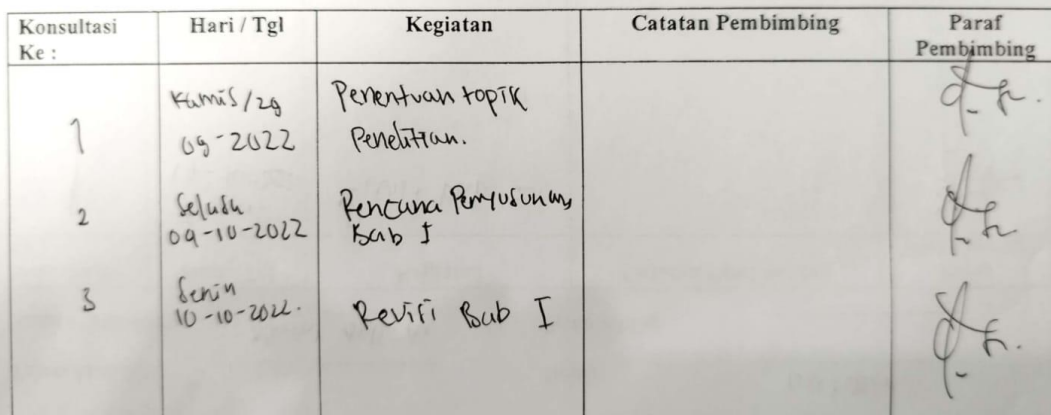 Konsultasi Ke :
Hari / Tgl
Kegiatan
Catatan Pembimbing
Paraf Pembimbing
1
Kamis / 29
09-2022
Penentuan topik
Penelitian.
2
Selasa
04-10-2022
Rencana Penyusunan
Bab I
3
Senin
10-10-2022.
Revisi Bab I